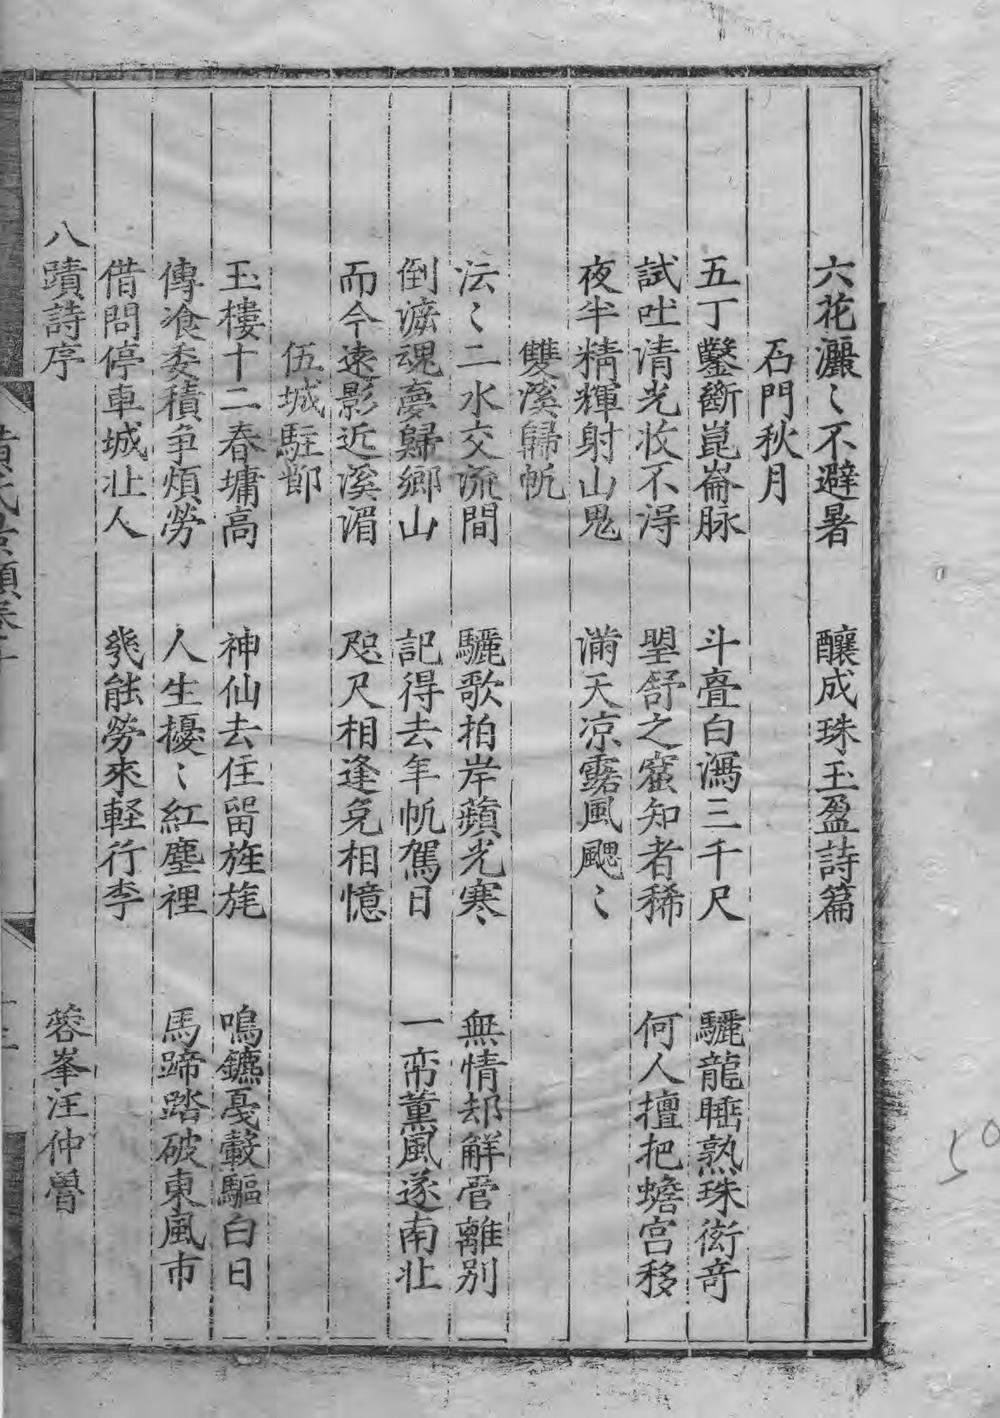 六花灑〻不避暑　釀成珠玉盈詩篇
石門秋月
五丁鑿斷崑崙脉　斗疊白㵼三千尺　驪龍睡熟珠衒奇
試吐清光收不得　朢舒之窟知者稀　何人擅把蟾宫移
夜半精輝射山鬼　滿天凉露風颸〻
雙溪歸帆
沄〻二水交流間　驪歌拍岸蘋光寒　無情却解管離別
倒瀉魂夢歸鄉山　記得去年帆駕日　一帘薰風遂南北
而今遠影近溪湄　咫尺相逢免相憶
伍城駐節
玉樓十二春墉高　神仙去住留旌旄　鳴鑣戞轂驅白日
傳飡委積爭煩勞　人生擾〻紅塵裡　馬蹄踏破東風市
借問停車城北人　幾能勞來輕行李
八蹟詩序　蓉峯汪仲魯